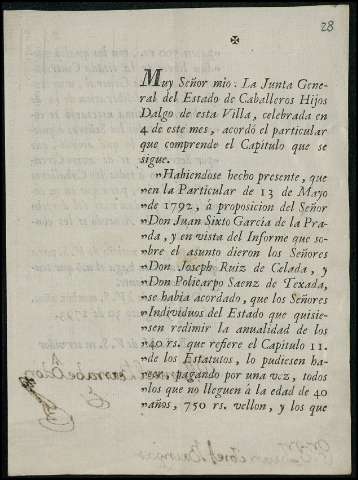 28
✠
Muy Señor mio: La Junta Gene-
ral del Estado de Caballeros Hijos
Dalgo de esta Villa, celebrada en
4 de este mes, acordó el particular
que comprende el Capitulo que se
sigue.
„Habiendose hecho presente, que
„en la Particular de 13 de Mayo
„de 1792, à proposicion del Señor
„Don Juan Sixto Garcia de la Pra-
„da, y en vista del Informe que so-
„bre el asunto dieron los Señores
„Don Joseph Ruiz de Celada, y
„Don Policarpo Saenz de Texada,
„se habia acordado, que los Señores
„Individuos del Estado que quisie-
„sen redimir la anualidad de los
„40 rs. que refiere el Capitulo 11.
„de los Estatutos, lo pudiesen ha-
„cer, pagando por una vez, todos
„los que no lleguen à la edad de 40
„años, 750 rs. vellon, y los que